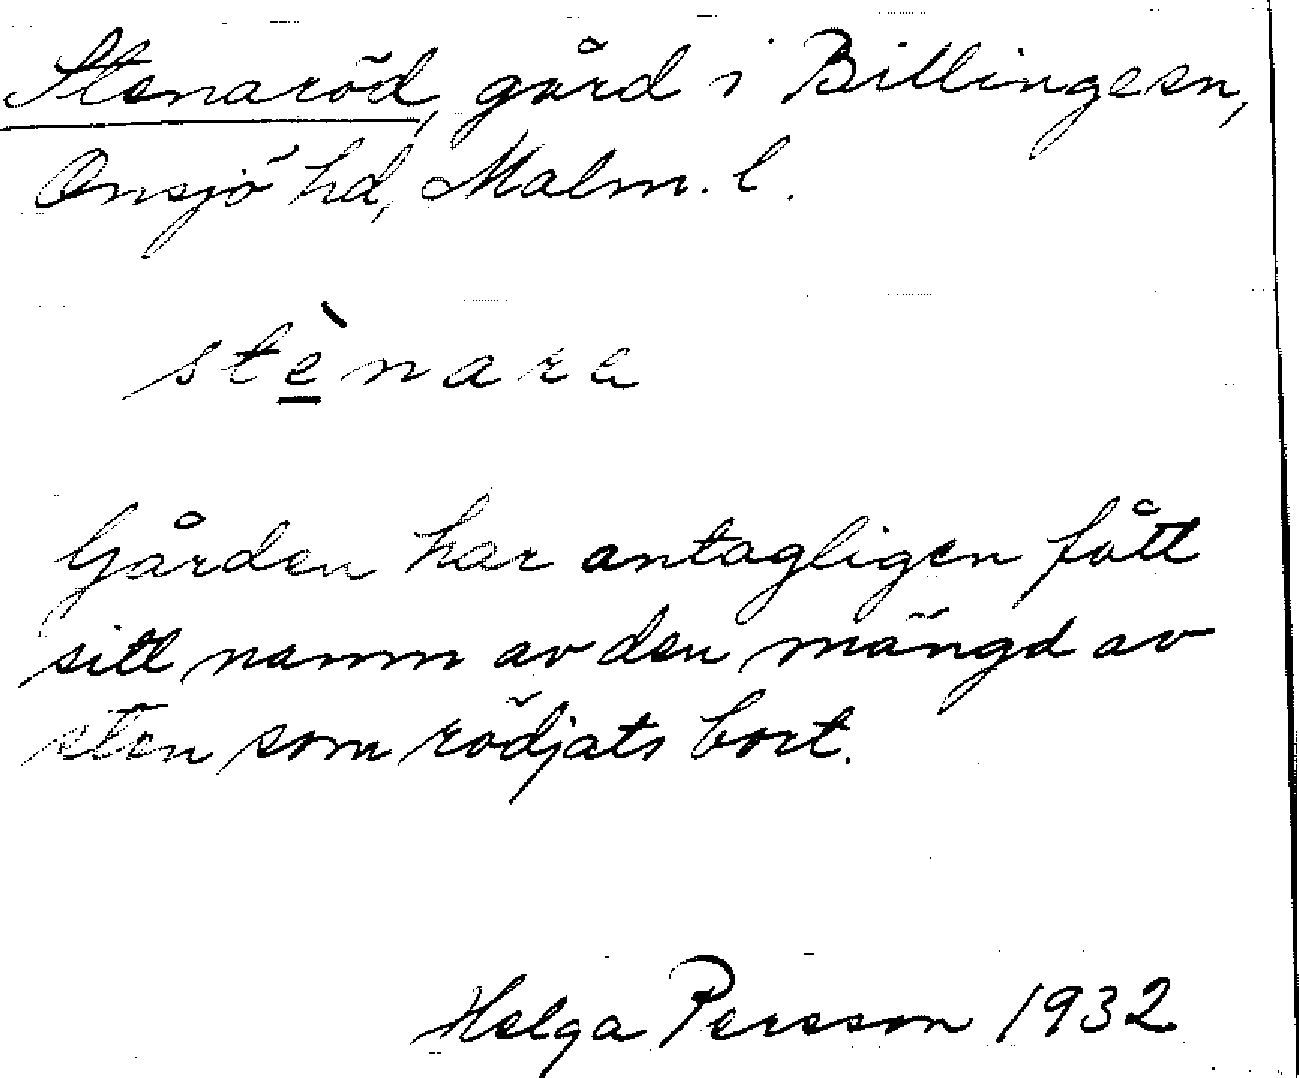 Stenaröd, gård i Billinge sn,
Onsjö hd, Malm. l.
stènara
Gården har antagligen fått
sitt namn av den mängd av
sten som rödjats bort.
Helga Persson 1932